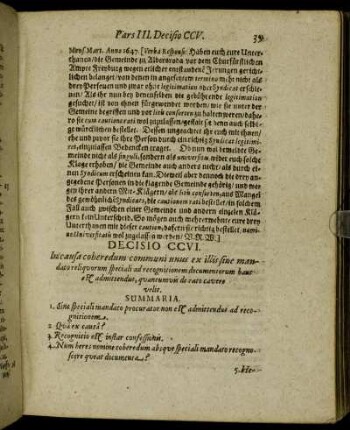 Pars III. Decisio CCV.
Mens. Mart. Anno 1647. [Verba Respons: Haben euch eure Unter-
thanen / die Gemeinde zu vor dem Churfürstlichen
Ampte Freyburg wegen etlicher Irrungen gericht-
lichen belanget / von denen in angesetztem termino mehr nicht als
drey Personen und zwar ohne legitimation oder Syndicat erschie-
nen / Als ihr nun bey denenselben die gebührende legitimation
gesuchet / ist von ihnen fürgewendet worden / wie sie unter der
Gemeine begriffen und vor litis consorten zu halten weren / dahe-
ro sie cum cautione rati wol zuzulassen / gestalt sie denn auch selbi-
ge mündlichen bestellet. Dessen ungeachtet ihr euch mit ihnen /
ehe und zuvor sie ihre Person durch ein richtig Syndicat legitimi-
ren, einzulassen Bedencken traget. Ob nun wol bemeldte Ge-
meinde nicht als singuli, sondern als universitas wider euch solche
Klage erhoben / die Gemeinde auch anders nicht / als durch ei-
nen Syndicum erscheinen kan. Dieweil aber dennoch die drey an-
gegebene Personen in die klagende Gemeinde gehörig / und we-
gen ihrer andern Mit-Klägern / als litis consorten, aus Mangel
des gewöhnlich Syndicats, die cautionem rati bestellet / in solchem
Fall auch zwischen einer Gemeinde und andern eintzeln Klä-
gern kein Unterscheid. So mögen auch mehrermeldte eure drey
Unterthanen mit dieser caution, dafern sie richtig bestellet, nomi-
ne Universitatis wol zugelassen werden / V. R. W.]
DECISIO CCVI.
In causa coheredum communi unus ex illis sine man-
dato reliquorum speciali ad recognitionem documentorum haut
est admittendus, quantumvis de rato cavere
velit.
SUMMARIA.
1. Sine speciali mandato procurator non est admittendus ad reco-
gnitionem.
2. Quâ ex causâ?
3. Recognitio est instar confessionis.
4. Num heres nomine coheredum absque speciali mandato recogno-
scere queat documenta?